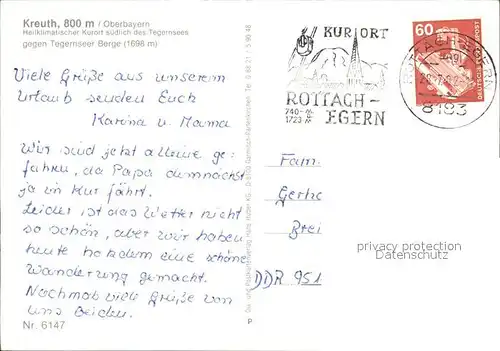 Kreuth, 800 m / Oberbayern
Heilklimatischer Kurort südlich des Tegernsees
gegen Tegernseer Berge (1698 m)
Viele Grüße aus unserem
Urlaub senden Euch
Karina u. Mama
Wir sind jetzt alleine ge-
fahren, da Papa demnächst
ja in Kur fährt.
Leider ist das Wetter nicht
so schön, aber wir haben
heute trotzdem eine schöne
Wanderung gemacht.
Nochmals viele Grüße von
uns beiden.
Nr. 6147
P
KURORT
ROTTACH-
EGERN
740-m
1723 m
60
DEUTSCHE BUNDESPOST
8183
Fam.
Gerhc
Brei
DDR 951
privacy protection
Datenschutz